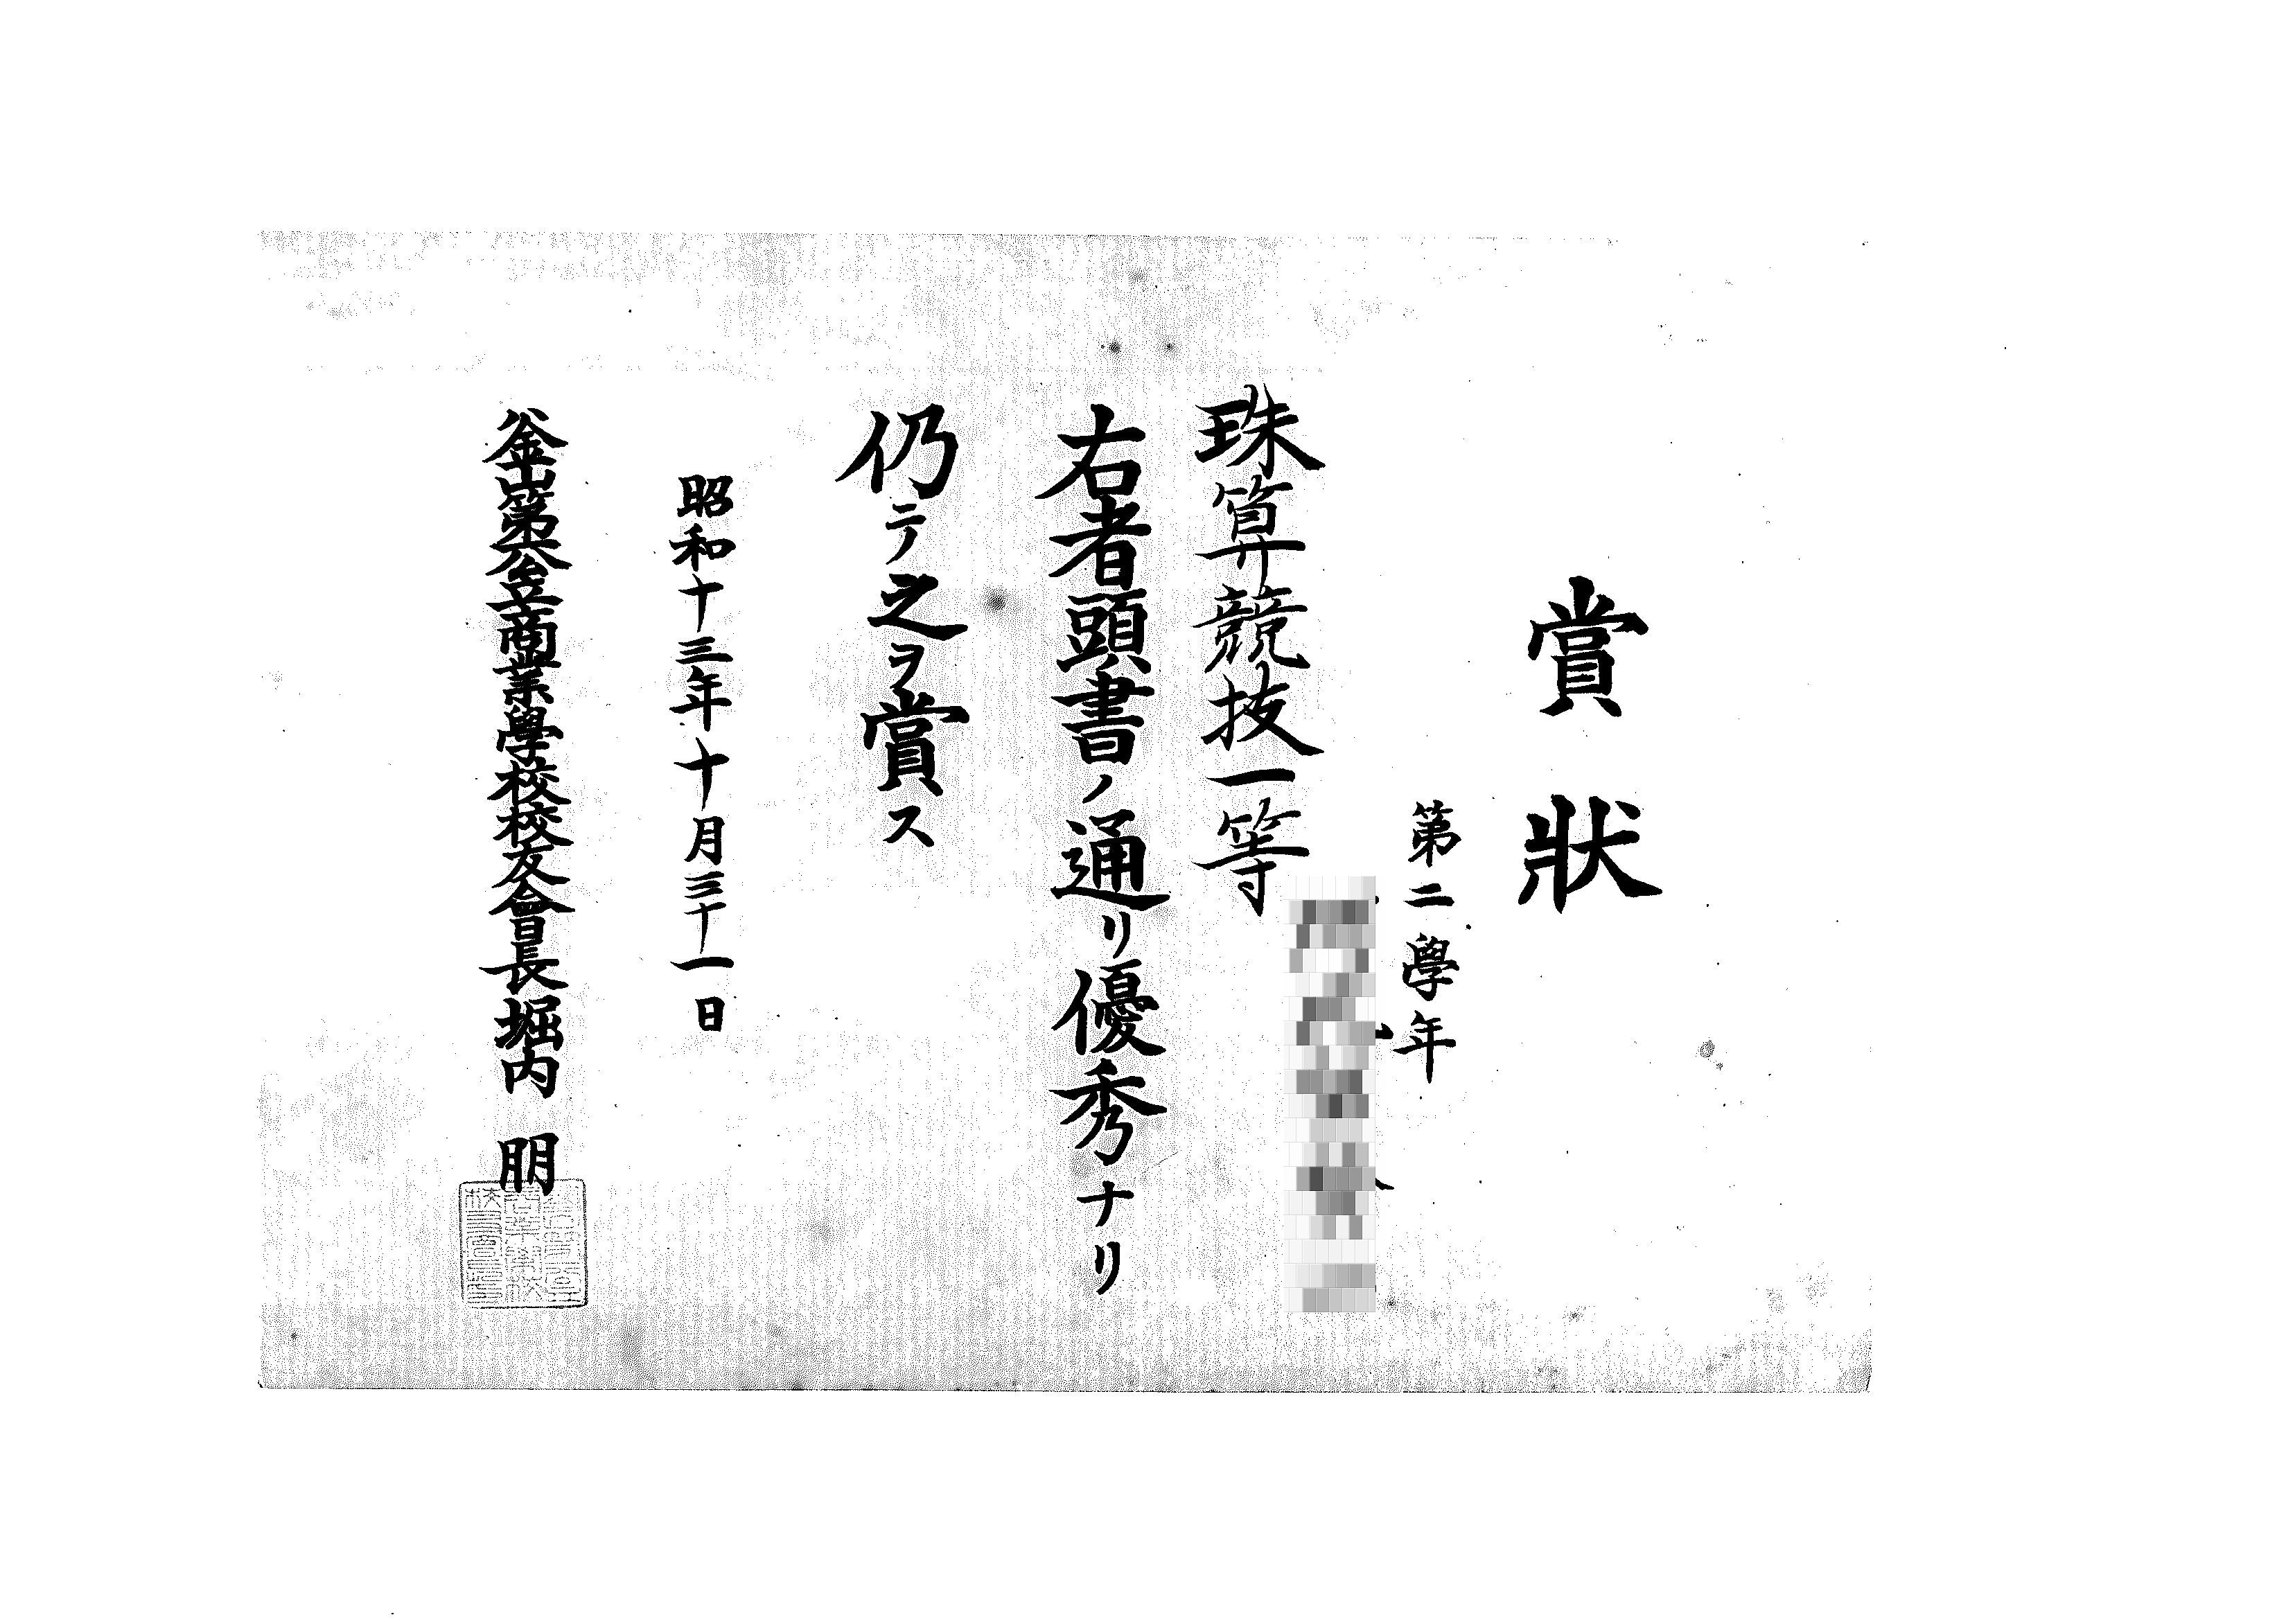 賞狀
第二學年
珠算競技一等
右者頭書ノ通リ優秀ナリ
仍テ之ヲ賞ス
昭和十三年十月三十一日
釜山第六公立商業學校校友會長堀内 朋